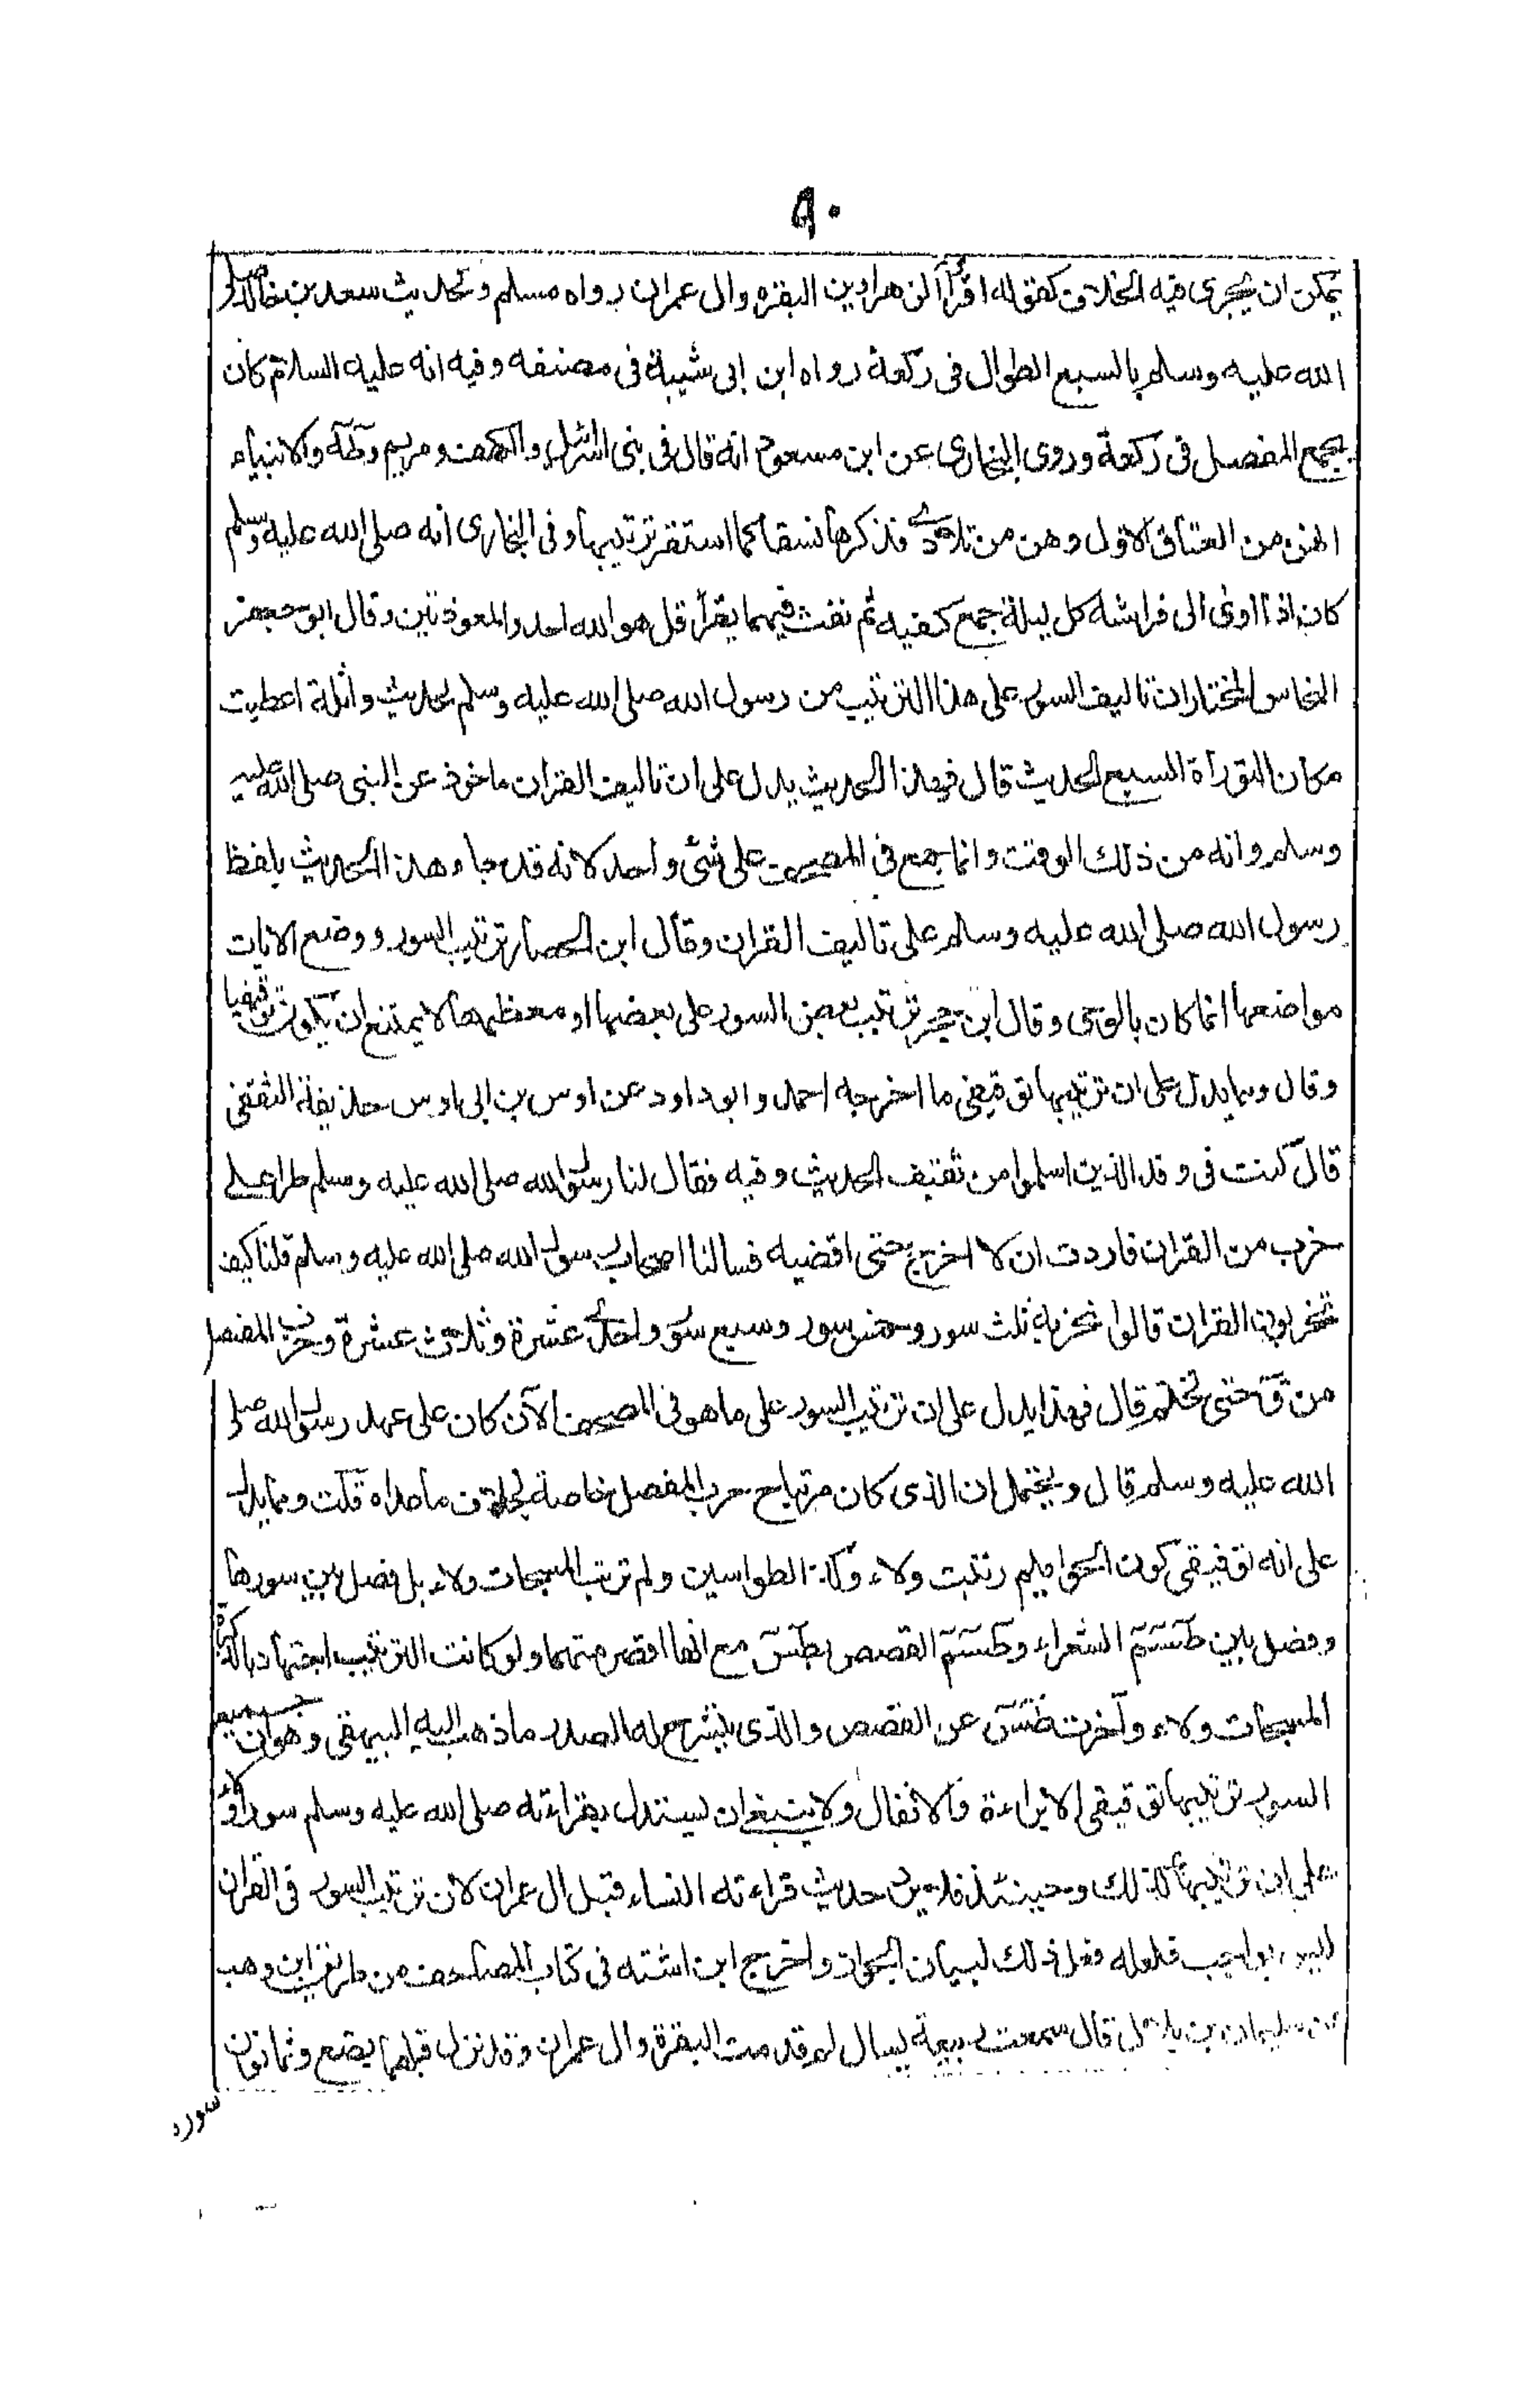 ٩٠
يمكن ان يجرى فيه الخلاف كقوله اقرأ الزهراوين البقره وال عمران رواه مسلم وكحديث سعد بن خالد صلى
الله عليه وسلم بالسبع الطوال فى ركعة رواه ابن ابى شيبة فى مصنفه وفيه انه عليه السلام كان
يجمع المفصل فى ركعة وروى البخارى عن ابن مسعود انه قال فى بنى اسرائيل والكهف ومريم وطه والانبياء
انهن من العتاق الاول وهن من تلادى فذكرها نسقا كما استقر ترتيبها وفى البخارى انه صلى الله عليه وسلم
كان اذا اوى الى فراشه كل ليلة جمع كفيه ثم نفث فيهما يقرأ قل هو الله احد والمعوذتين وقال ابو جعفر
النحاس المختاران تاليف السور على هذا الترتيب من رسول الله صلى الله عليه وسلم لحديث واثلة اعطيت
مكان التوراة السبع الحديث قال فهذا الحديث يدل على ان تاليف القران ماخوذ عن النبى صلى الله عليه
وسلم وانه من ذلك الوقت وانما جمع فى المصحف على شئ واحد لانه قد جاء هذا الحديث بلفظ
رسول الله صلى الله عليه وسلم على تاليف القران وقال ابن الحصار ترتيب السور ووضع الايات
مواضعها انما كان بالوحى وقال ابن حجر ترتيب بعض السور على بعضها او معظمها لا يمتنع ان يكون توقيفيا
وقال ومما يدل على ان ترتيبها توقيفى ما اخرجه احمد وابو داود عن اوس بن ابى اوس حذيفة الثقفى
قال كنت فى وفد الذين اسلموا من ثقيف الحديث وفيه فقال لنا رسول الله صلى الله عليه وسلم طرا على
حزب من القران فاردت ان لا اخرج حتى اقضيه فسالنا اصحاب رسول الله صلى الله عليه وسلم قلنا كيف
تحزبون القران قالوا نحزبه ثلث سور وخمس سور وسبع سور واحدى عشرة وثلاث عشرة وحزب المفصل
من ق حتى نختم قال فهذا يدل على ان ترتيب السور على ما هو فى المصحف الآن كان على عهد رسول الله صلى
الله عليه وسلم قال ويحتمل ان الذى كان مرتبا ح حزب المفصل خاصة بخلاف ما عداه قلت ومما يدل
على انه توقيفى كون الحواميم رتبت ولاء وكذا الطواسين ولم ترتب المسبحات ولاء بل فصل بين سورها
وفصل بين طسم الشعراء وطسم القصص بطس مع انها اقصر منهما ولو كانت الترتيب اجتهاديا لذكرت
المسبحات ولاء وآخرت طس عن القصص والذى ينشرح له الصدر ما ذهب اليه البيهقى وهوان جميع
السور ترتيبها توقيفى الا براءة والانفال ولا ينبغى ان يستدل بقراءته صلى الله عليه وسلم سورا ولاء
على ان ترتيبها كذلك وحينئذ فلا يرد حديث قراءته النساء قبل ال عمران لان ترتيب السور فى القراءة
ليس بواجب فلعله فعل ذلك لبيان الجواز واخرج ابن اشته فى كتاب المصاحف من طريق ابن وهب
عن سليمان بن بلال قال سمعت ربيعة يسال لم قدمت البقرة وال عمران وقد نزل قبلهما بضع وثمانون
سوره